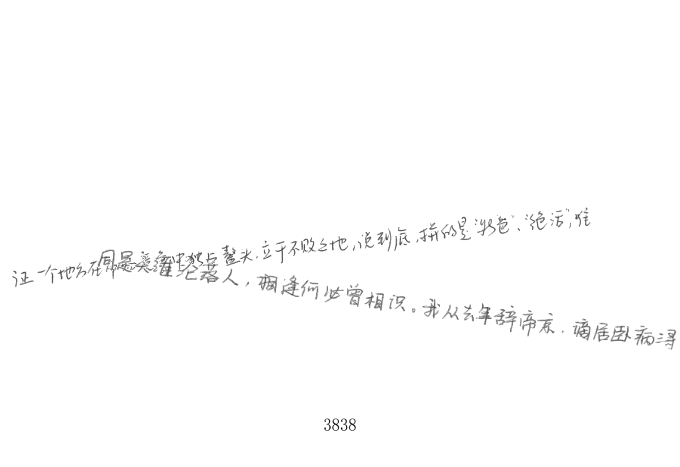 证一个地方在中独占鳌头,立于不败之地,说到底,拼的是“特色”、“绝活”,唯
同是天涯沦落人,相逢何必曾相识。我从去年辞帝京,谪居卧病浔
3838